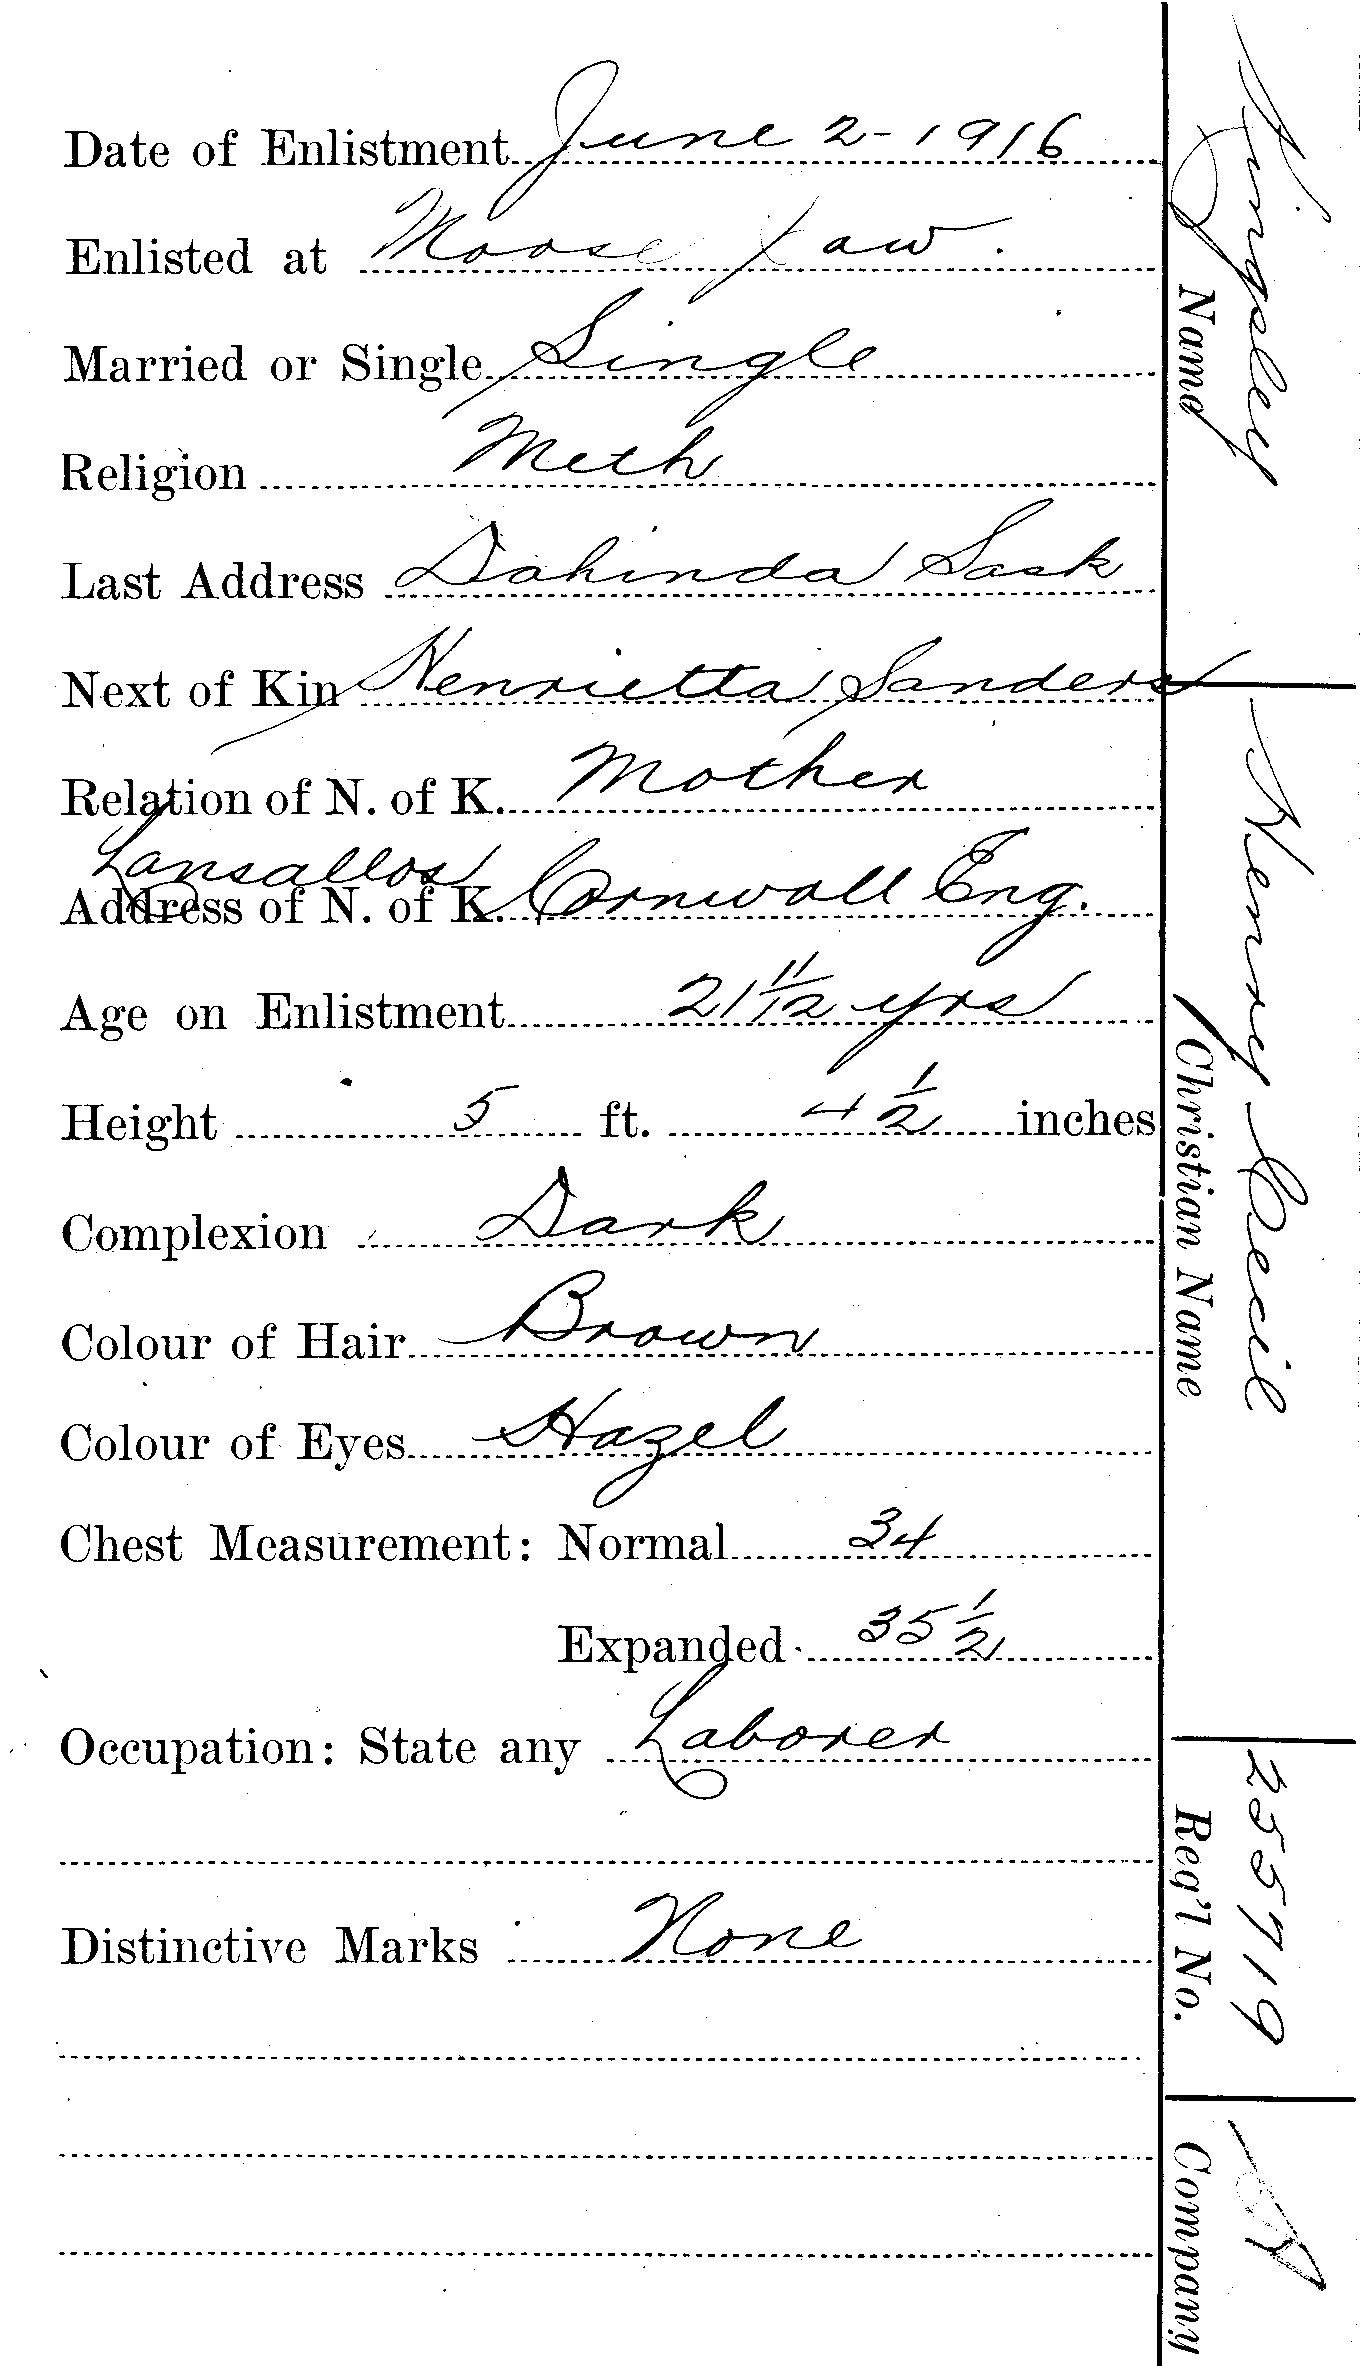 Date of Enlistment June 2-1916
Enlisted at Moose Jaw.
Married or Single Single
Religion Meth
Last Address Dahinda Sask
Next of Kin Henrietta Sanders
Relation of N. of K. Mother
Lansallos
Address of N. of K. Cornwall Eng.
Age on Enlistment 21 11/12 yrs
Height 5 ft. 4 1/2 inches
Complexion Dark
Colour of Hair Brown
Colour of Eyes Hazel
Chest Measurement: Normal 34
Expanded 35 1/2
Occupation: State any Laborer
Distinctive Marks None
Kingsley
Name
Henry Cecil
Christian Name
255719
Reg'l No.
A
Company